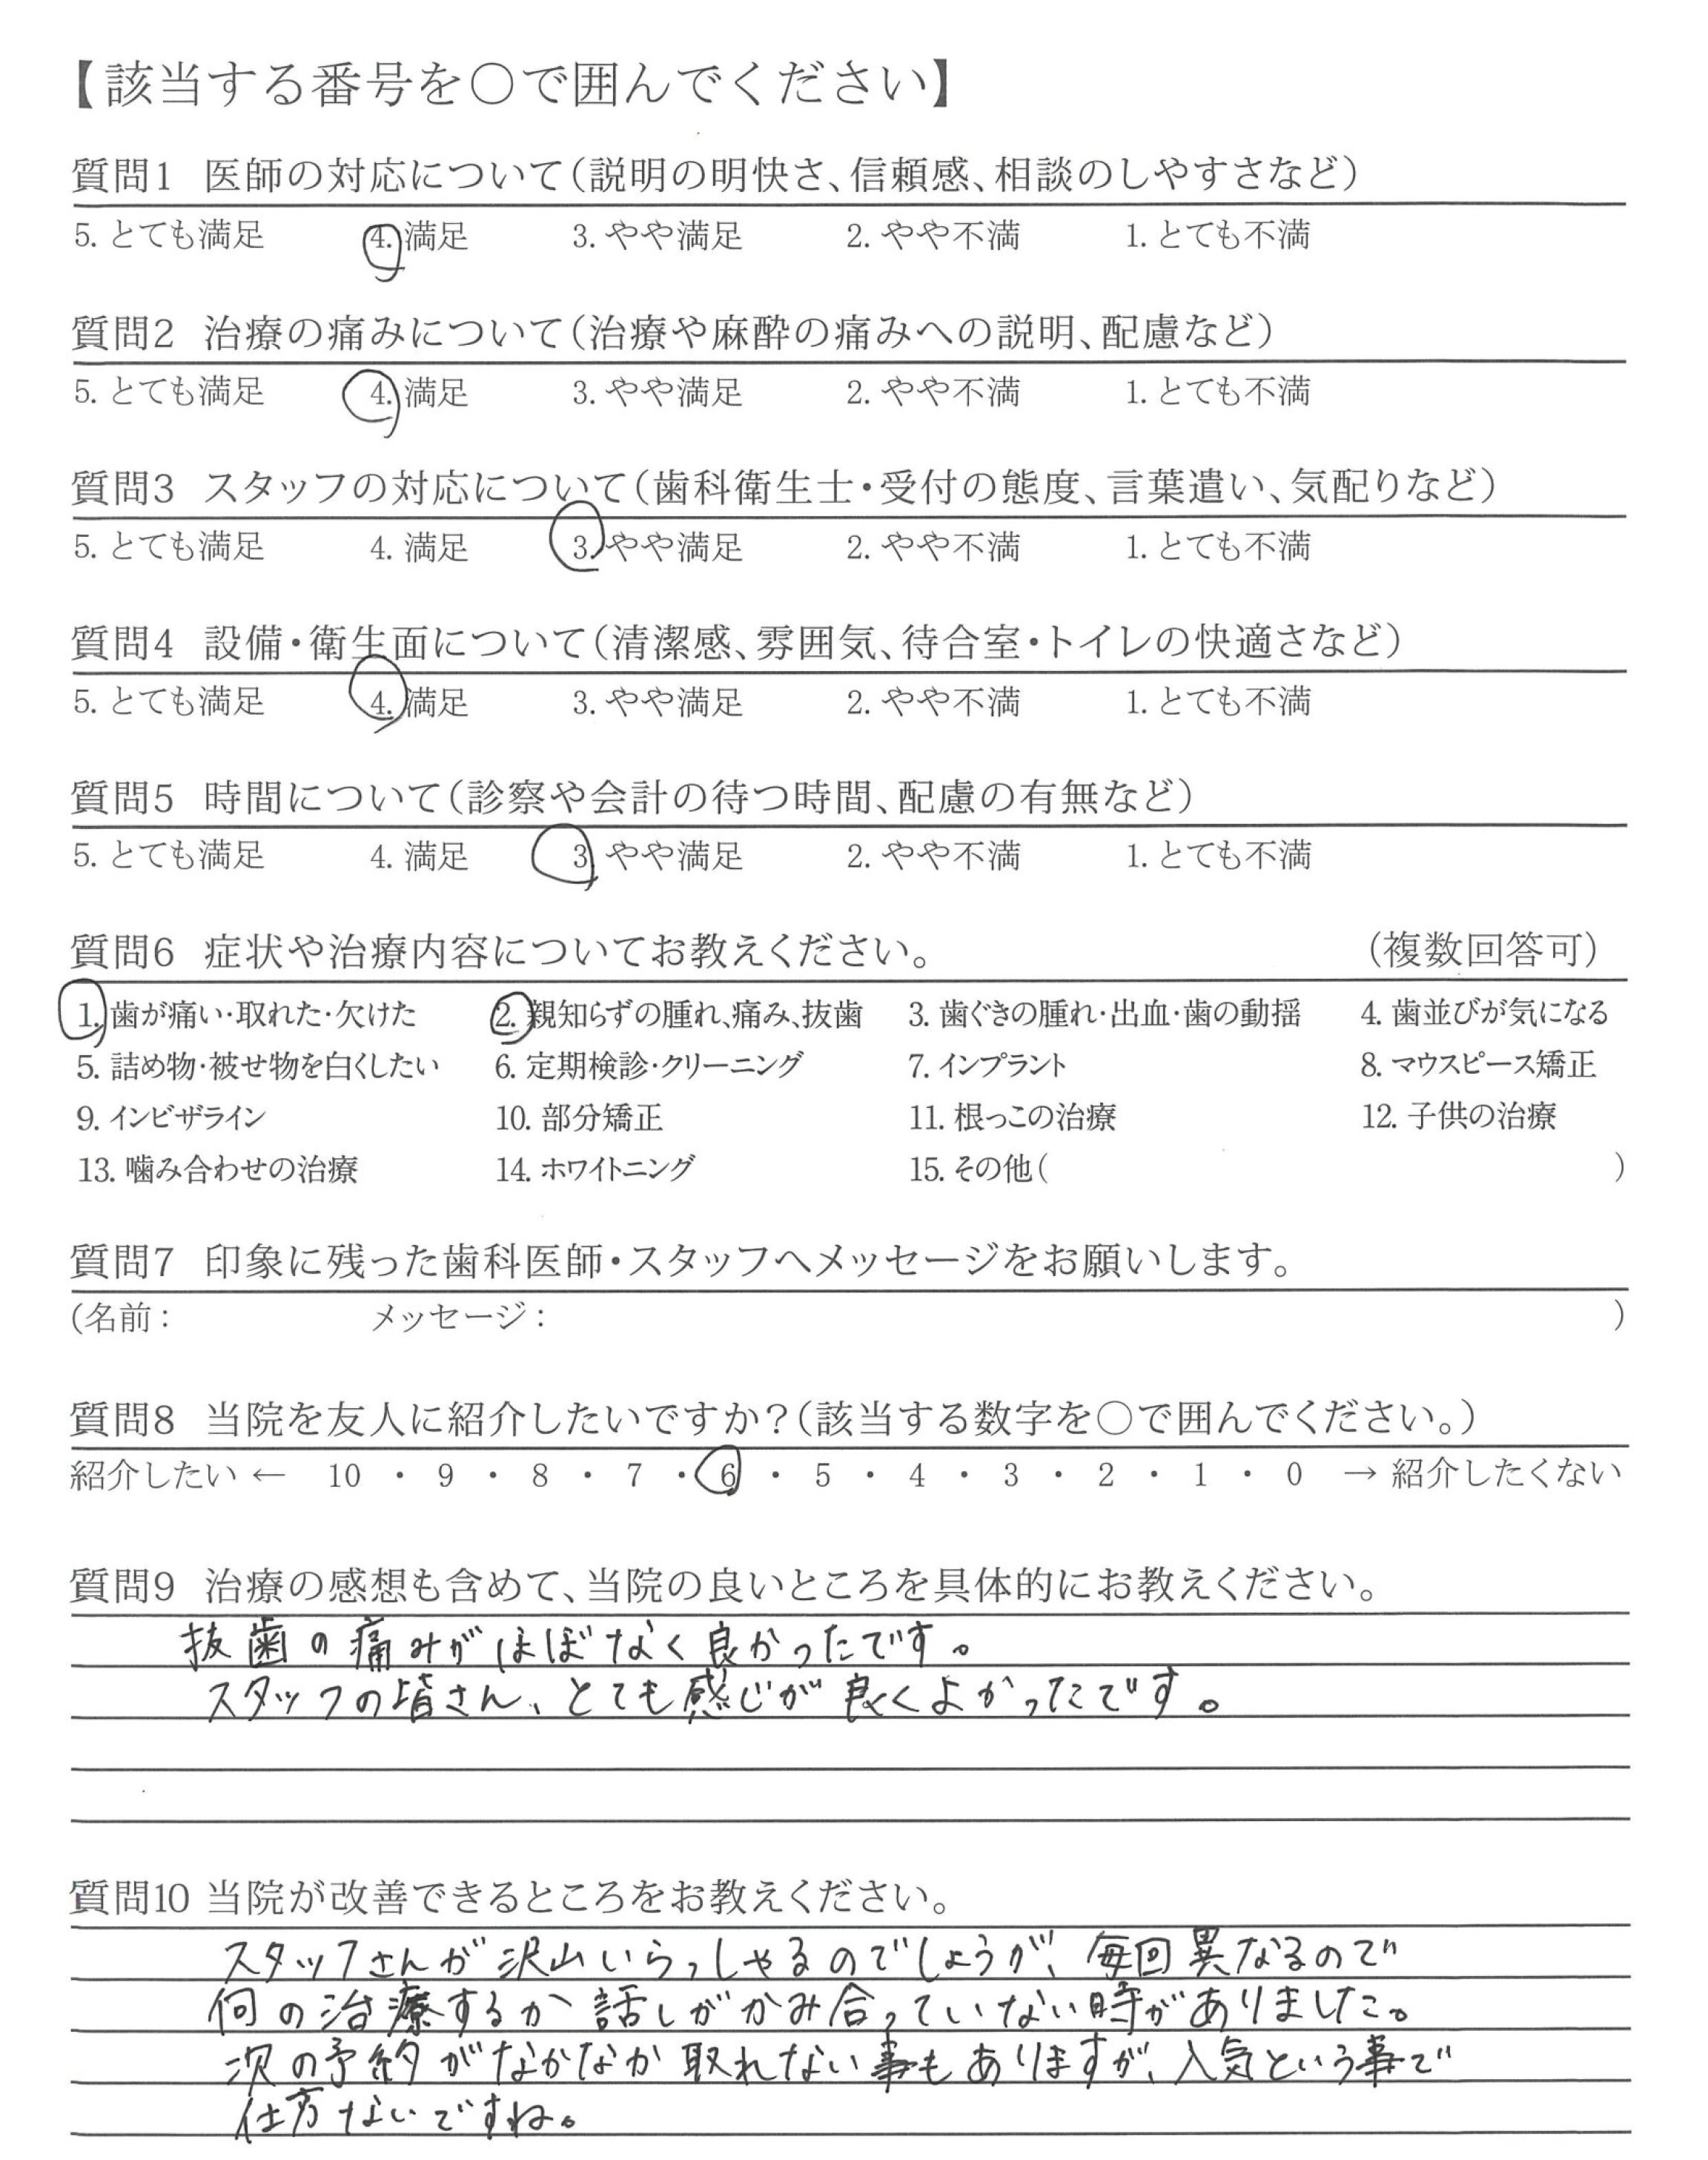 【該当する番号を○で囲んでください】
質問1 医師の対応について(説明の明快さ、信頼感、相談のしやすさなど)
5. とても満足 4. 満足 3. やや満足 2. やや不満 1. とても不満
質問2 治療の痛みについて(治療や麻酔の痛みへの説明、配慮など)
5. とても満足 4. 満足 3. やや満足 2. やや不満 1. とても不満
質問3 スタッフの対応について(歯科衛生士・受付の態度、言葉遣い、気配りなど)
5. とても満足 4. 満足 3. やや満足 2. やや不満 1. とても不満
質問4 設備・衛生面について(清潔感、雰囲気、待合室・トイレの快適さなど)
5. とても満足 4. 満足 3. やや満足 2. やや不満 1. とても不満
質問5 時間について(診察や会計の待つ時間、配慮の有無など)
5. とても満足 4. 満足 3. やや満足 2. やや不満 1. とても不満
質問6 症状や治療内容についてお教えください。 (複数回答可)
1. 歯が痛い・取れた・欠けた 2. 親知らずの腫れ、痛み、抜歯 3. 歯ぐきの腫れ・出血・歯の動揺 4. 歯並びが気になる
5. 詰め物・被せ物を白くしたい 6. 定期検診・クリーニング 7. インプラント 8. マウスピース矯正
9. インビザライン 10. 部分矯正 11. 根っこの治療 12. 子供の治療
13. 噛み合わせの治療 14. ホワイトニング 15. その他( )
質問7 印象に残った歯科医師・スタッフへメッセージをお願いします。
(名前: メッセージ: )
質問8 当院を友人に紹介したいですか?(該当する数字を○で囲んでください。)
紹介したい ← 10 ・ 9 ・ 8 ・ 7 ・ 6 ・ 5 ・ 4 ・ 3 ・ 2 ・ 1 ・ 0 → 紹介したくない
質問9 治療の感想も含めて、当院の良いところを具体的にお教えください。
抜歯の痛みがほぼなく良かったです。
スタッフの皆さん、とても感じが良くよかったです。
質問10 当院が改善できるところをお教えください。
スタッフさんが沢山いらっしゃるのでしょうが、毎回異なるので
何の治療するか話しがかみ合っていない時がありました。
次の予約がなかなか取れない事もありますが、人気という事で
仕方ないですね。